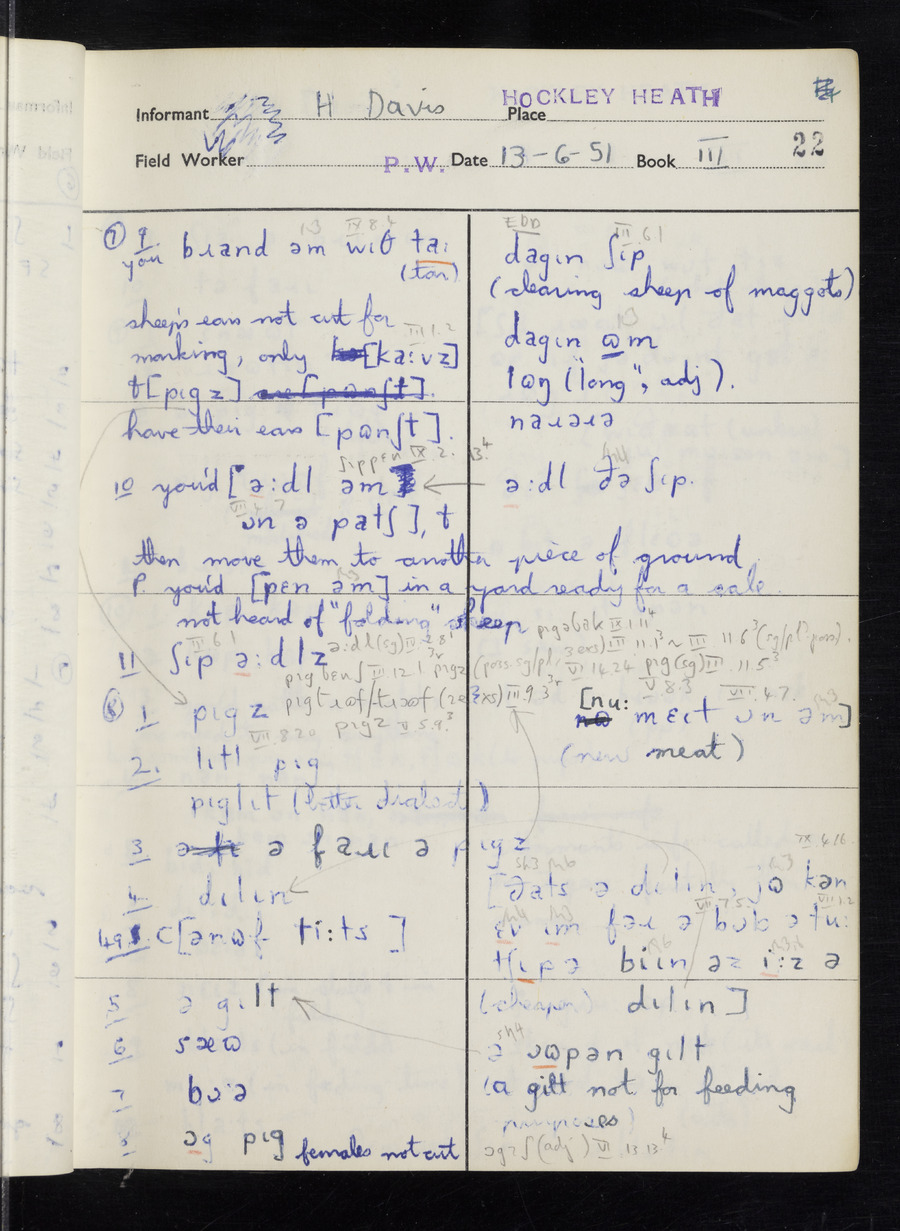 HOCKLEY HEATH
Informant H Davis Place
Field Worker P.W. Date 13-6-51 Book III 22
⑦ 9. you brand əm wɪθ taː
(tar)
sheep's ears not cut for
marking, only [kaːvz]
t[pɪgz]
have their ears [pɷnʃt].
10 you'd [əːdl əm
ʊn ə patʃ], t
then move them to another piece of ground.
P. you'd [pɛn əm] in a yard ready for a sale.
not heard of "folding" sheep
11 ʃɪp əːdlz
⑧ 1 pɪgz
2. lɪtl pɪg
pɪglɪt (better dialect)
3 ə faɹɪ ə pɪgz
4 dɪlɪn
C[ənɷf tiːts]
5 ə gɪlt
6 sæɷ
7 bɔːə
8 ɔg pɪg females not cut
EDD III.6.1
dagɪn ʃɪp
(clearing sheep of maggots)
dagɪn ɷm
lɒŋ ("long", adj).
naɹəɹə
əːdl ðə ʃɪp.
[nuː mɛɪt ʊn əm]
(new meat)
[ðats ə dɪlɪn, jɷ kən
ɪm fəɹ ə bɒb ə tuː
tʃɪpə biɪn əz iːz ə
(cheaper) dɪlɪn]
ə ɔɷpən gɪlt
(a gilt not for feeding
purposes)